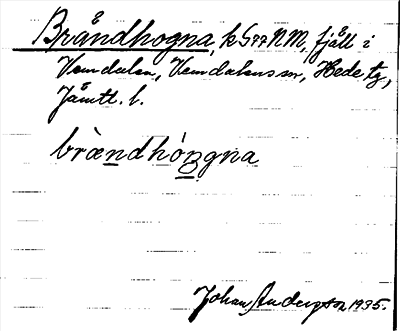 Bråndhogna, k G77 NM, fjäll i
Vemdalen, Vemdalens sn, Hede tg,
Jämtl. l.
brændhóŋgna
Johan Anderson 1935.